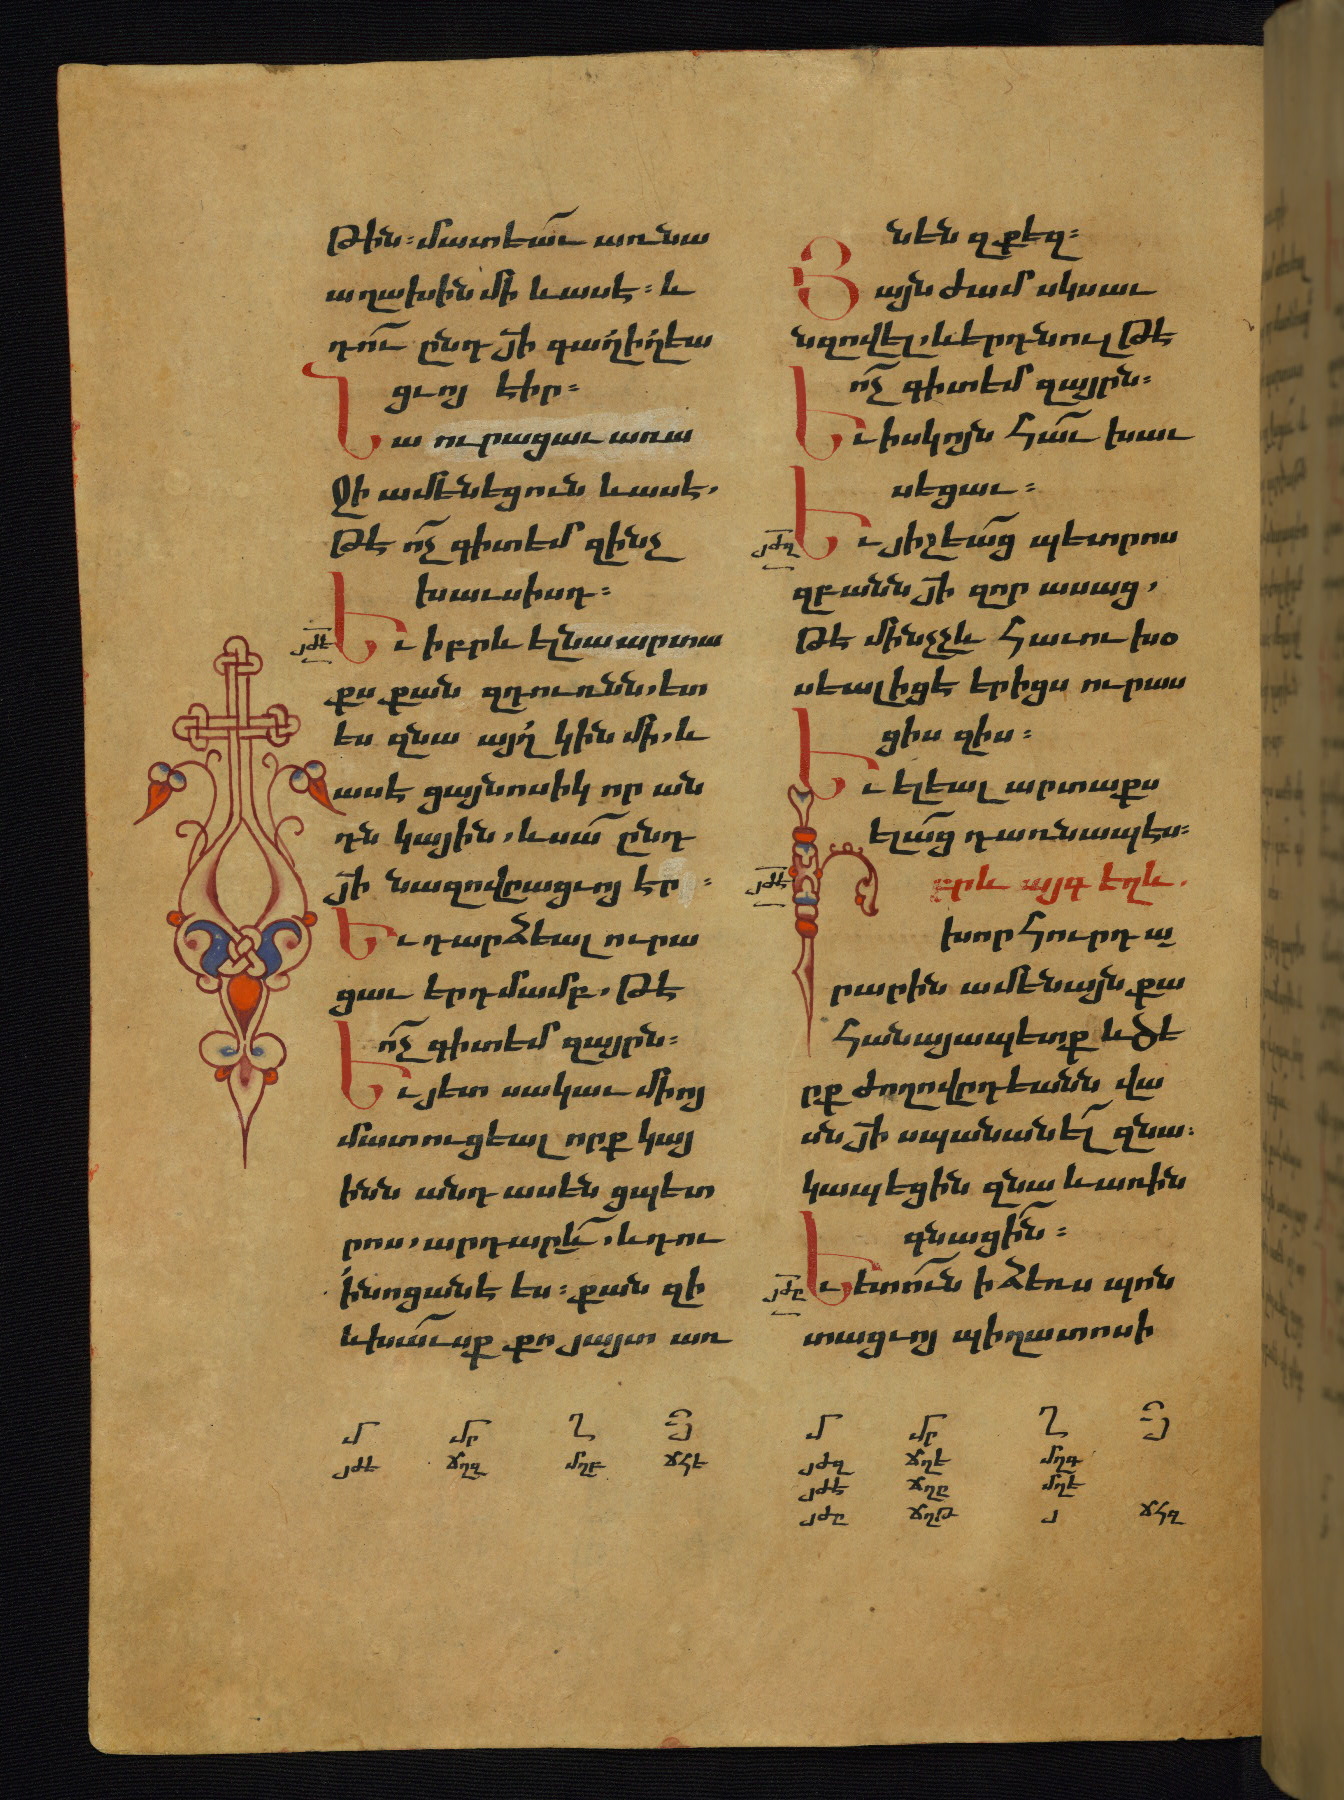 թին։ մատեաւ առ նա
աղախին մի և ասէ։ և
դու ընդ յի գաղիղէա
ցւոյ էիր։
Նա ուրացաւ առա
ջի ամենեցուն և ասէ,
թե ոչ գիտեմ զինչ
խաւսիսդ։
յժե
Եւ իբրև ել նա արտա
քս քան զդուռնն, ետ
ես զնա այղ կին մի, և
ասէ ցայնոսիկ որ ան
դն կային, և սա ընդ
յի նազովրացւոյ էր։
Եւ դարձեալ ուրա
ցաւ երդմամբ, թե
ոչ գիտեմ զայրն։
Եւ յետ սակաւ միոյ
մատուցեալ որք կայ
ինն անդ ասեն ցպետ
րոս, արդարև, և դու
ի նոցանե ես։ քան զի
և խաւսք քո յայտ առ
նեն զքեզ։
Յայնժամ սկսաւ
նզովել, և երդնուլ թե
ոչ գիտեմ զայրն։
Եւ իսկոյն հաւ խաւ
սեցաւ։
յժզ
Եւ յիշեաց պետրոս
զբանն յի զոր ասաց,
թե մինչչև հաւու խօ
սեալ իցէ երիցս ուրաս
ցիս զիս։
Եւ ելեալ արտաքս
ելաց դառնապես։
յժէ
Իբրև այգ եղև.
խորհուրդ ա
րարին ամենայն քա
հանայապետք և ծե
րք ժողովրդեանն վա
սն յի սպանանել զնա։
կապեցին զնա և առին
գնացին։
յժը
Եւ ետուն ի ձեռս պոն
տացւոյ պիղատոսի
մ մր ղ յ
յժե ճղզ մղբ ճհե
մ մր ղ յ
յժզ ճղէ մղգ
յժէ ճղը մղե
յժը ճղթ յ ճհզ